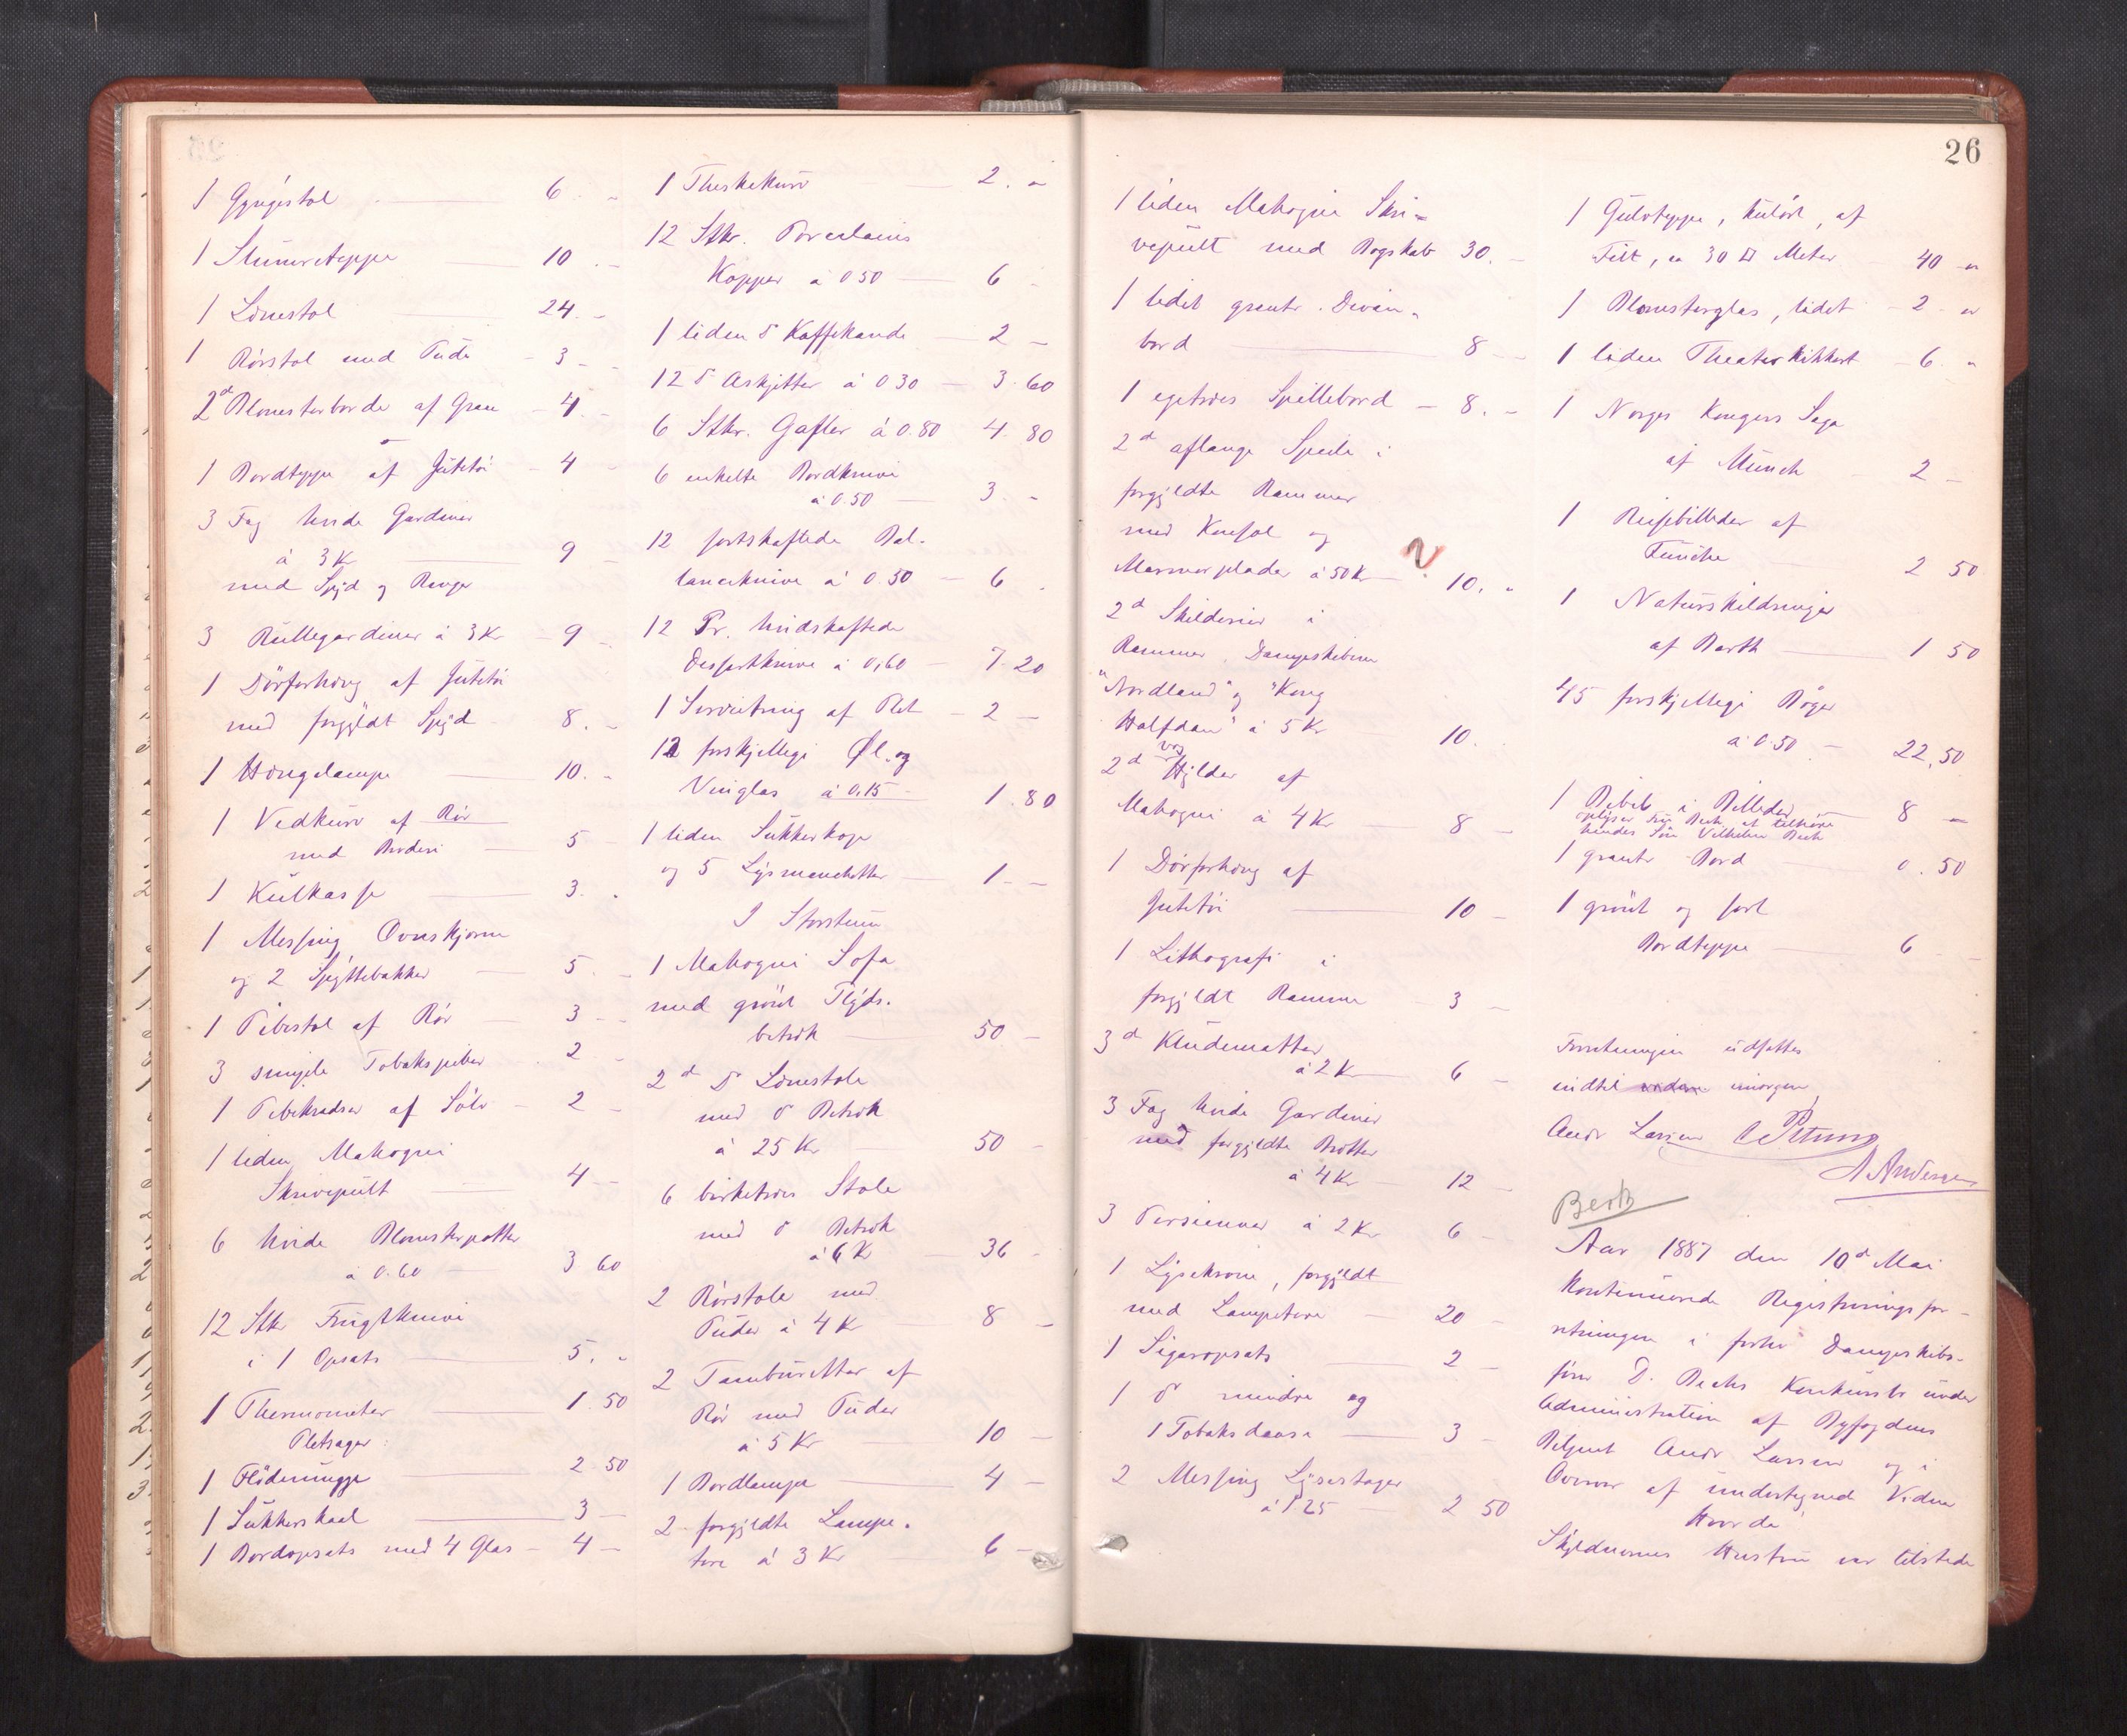 1 Gyngestol 6. "
1 Slumretæppe 10. -
1 Lænestol 24. -
1 Rørstol med Pude - 3 -
2d Blomsterborde af Gran - 4. -
1 Bordtæppe af Jutetøi - 4 -
3 Fag hvide Gardiner
à 3 Kr 9 -
med Spyd og Ringe
3 Rullegardiner à 3 Kr - 9 -
1 Dørforhæng af Jutetøi
med forgyldt Spyd 8. -
1 Hængelampe 10. -
1 Vedkurv af Rør
med Broderi 5 -
1 Kulkasse 3. "
1 Messing Ovnskjærm
og 2 Spyttebakker 5. -
1 Pibestol af Rør 3 -
3 simple Tobakspiber 2 -
1 Piberadser af Sølv - 2 -
1 liden Mahogni
Skrivepult 4 -
6 hvide Blomsterpotter
à 0.60 3 60
12 Stkr Frugtknive
i 1 Opsats 5. "
1 Thermometer 1. 50
Pletsager:
1 Flødemugge 2 50
1 Sukkerskaal 3 -
1 Bordopsats med 4 Glas - 4 -
1 Theskekurv 2. "
12 Stkr. Porcelains
Kopper à 0 50 6 -
1 liden do Kaffekande 2 -
12 do Askjetter à 0 30 3. 60
6 Stkr. Gafler à 0.80 4. 80
6 enkelte Bordknive
à 0.50 3. -
12 sortskaftede Bal-
lanceknive à 0.50 6 .
12 Pr. hvidskaftede
Dessertknive à 0,60 - 7. 20
1 Serviетring af Plet - 2 -
12 forskjellige Øl- og
Vinglas à 0,15 - 1. 80
1 liden Sukkerkop
og 5 Lysmanchetter 1 -
I Storstuen
1 Mahogni Sofa
med grønt Plyds-
betræk 50 -
2d do Lænestole
med do Betræk
à 25 Kr 50 -
6 birketræes Stole
med do Betræk
à 6 Kr 36 -
2 Rørstole med
Puder à 4 Kr 8 -
2 Tambouretter af
Rør med Puder
à 5 Kr 10 -
1 Bordlampe 4 -
2 forgyldte Lampe-
tter à 3 Kr 6 -
26
1 liden Mahogni Skri=
vepult med Bogskab 30. -
1 lidet grantr. Divan-
bord 8 -
1 egetræes Spillebord - 8. -
2d aflange Speile i
forgyldte Rammer
med Konsol og
Marmorplader à 50 Kr 10. "
2d Skilderier i
Rammer, Dampskibene
"Nordland" og "Kong
Halfdan" à 5 Kr 10.
2d Hylder af
Mahogni à 4 Kr 8 -
1 Dørforhæng af
Jutetøi 10 -
1 Lithografi i
forgyldt Ramme 3 -
3d Kludematter
à 2 Kr 6 -
3 Fag hvide Gardiner
med forgyldte Bretter
à 4 Kr 12 -
3 Persienner à 2 Kr 6 -
1 Lysekrone, forgyldt
med Lampetter 20 -
1 Sigaropsats 2 -
1 do mindre og
1 Tobaksdaase 3 -
2 Messing Lysestager
à 1 25 2 50
1 Gulvteppe, kulørt, af
Filt, ca 30 □ Meter 40 "
1 Blomsterglas, lidet - 2 - "
1 liden Theaterkikkert - 6. "
1 Norges Kongers Saga
af Munch 2 -
1 Reisebilleder af
Fincke 2 50
1 Naturskildringer
af Barth 1 50
45 forskjellige Bøger
à 0.50 - 22,50
1 Bibel i Billeder 8 -
oplyser Fru Bech at tilhøre
hendes Søn Vilhelm Bech
1 grantr. Bord 0. 50
1 grønt og sort
Bordteppe 6 -
Forretningen udsattes
indtil videre imorgen
Andr Larsen C Petersen
A Andersen
Bech
Aar 1887 den 10d Mai
kontinuerede Registreringsfor-
retningen i forhv Dampskibs-
fører D. Bechs Konkursbo under
Administration af Byfogdens
Betjent Andr Larsen og i
Overvær af undertegnede Vidner
Hvorda
Skyldnerens Hustru var tilstede